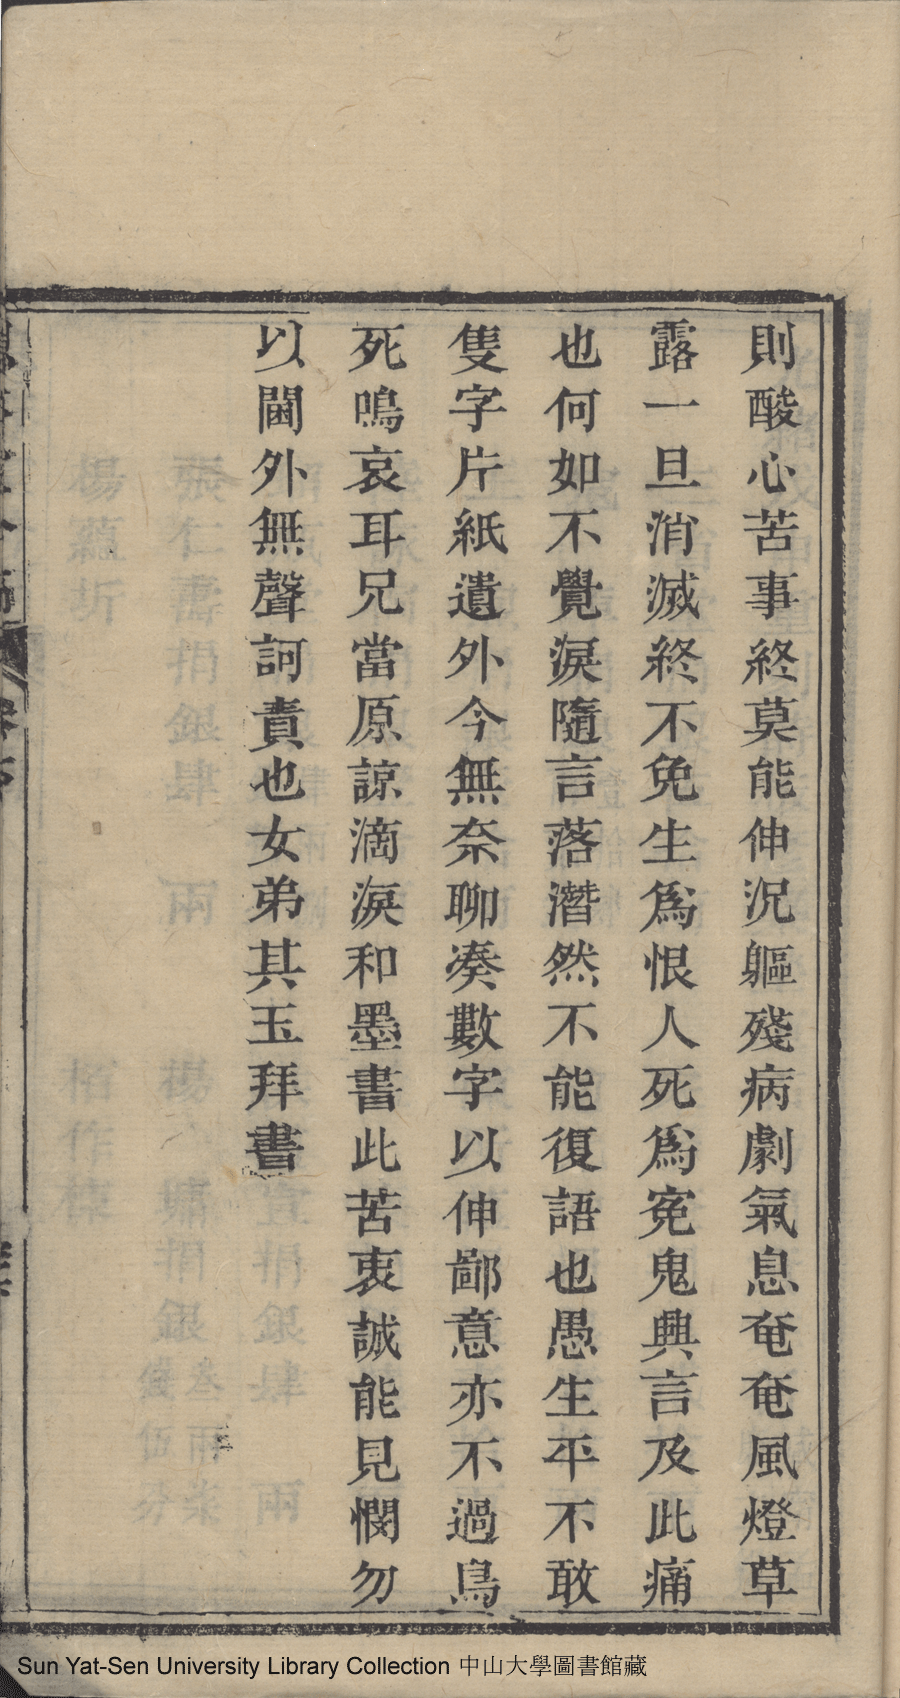 則酸心苦事終莫能伸況軀殘病劇氣息奄奄風燈草
露一旦消滅終不免生爲恨人死爲寃鬼興言及此痛
也何如不覺淚隨言落潛然不能復語也愚生平不敢
隻字片紙遺外今無奈聊湊數字以伸鄙意亦不過鳥
死鳴哀耳兄當原諒滴淚和墨書此苦衷誠能見憫勿
以閫外無聲訶責也女弟其玉拜書
Sun Yat-Sen University Library Collection 中山大學圖書館藏